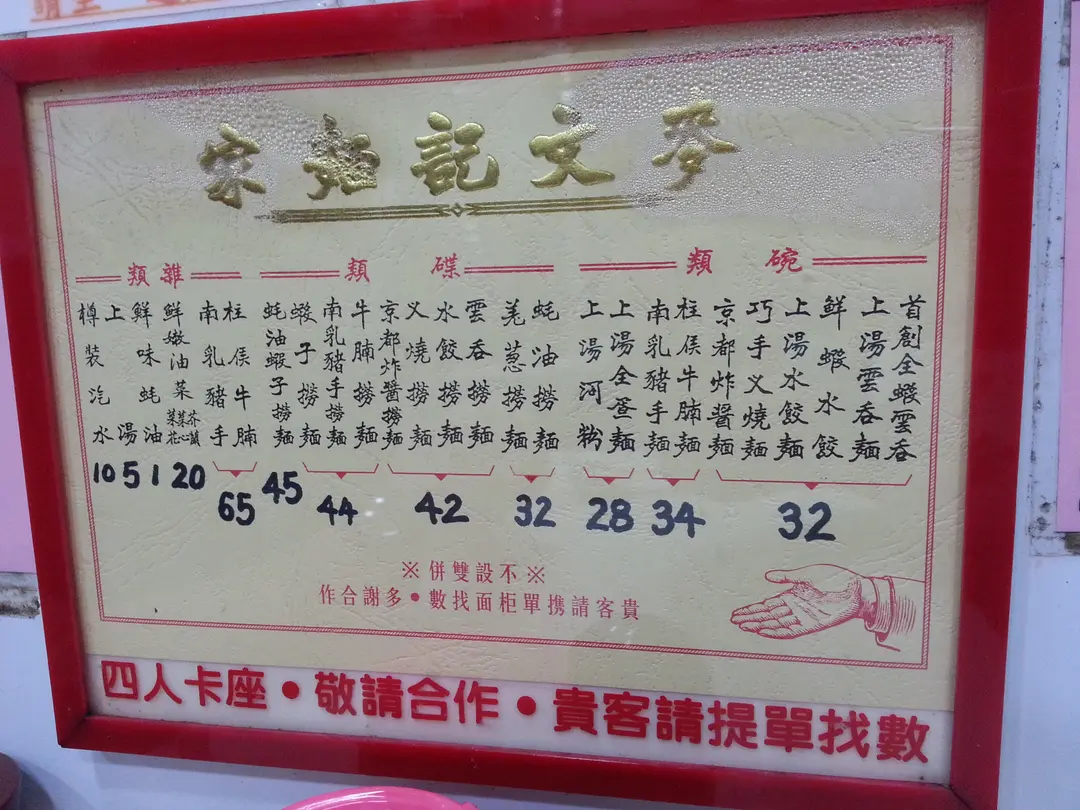 麥文記麵家
碗類
首創全蝦雲吞
上湯雲吞麵
鮮蝦水餃
上湯水餃麵
巧手叉燒麵
京都炸醬麵
32
柱侯牛腩麵
南乳豬手麵
34
上湯全蛋麵
上湯河粉
28
碟類
蚝油撈麵
羗葱撈麵
32
雲吞撈麵
水餃撈麵
叉燒撈麵
京都炸醬撈麵
42
牛腩撈麵
南乳豬手撈麵
蝦子撈麵
44
蚝油蝦子撈麵
45
雜類
柱侯牛腩
南乳豬手
65
鮮嫩油菜
芥蘭
20
鮮味蚝油
1
上湯
5
樽裝汽水
10
※不設雙併※
貴客請携單柜面找數•多謝合作
四人卡座•敬請合作•貴客請提單找數